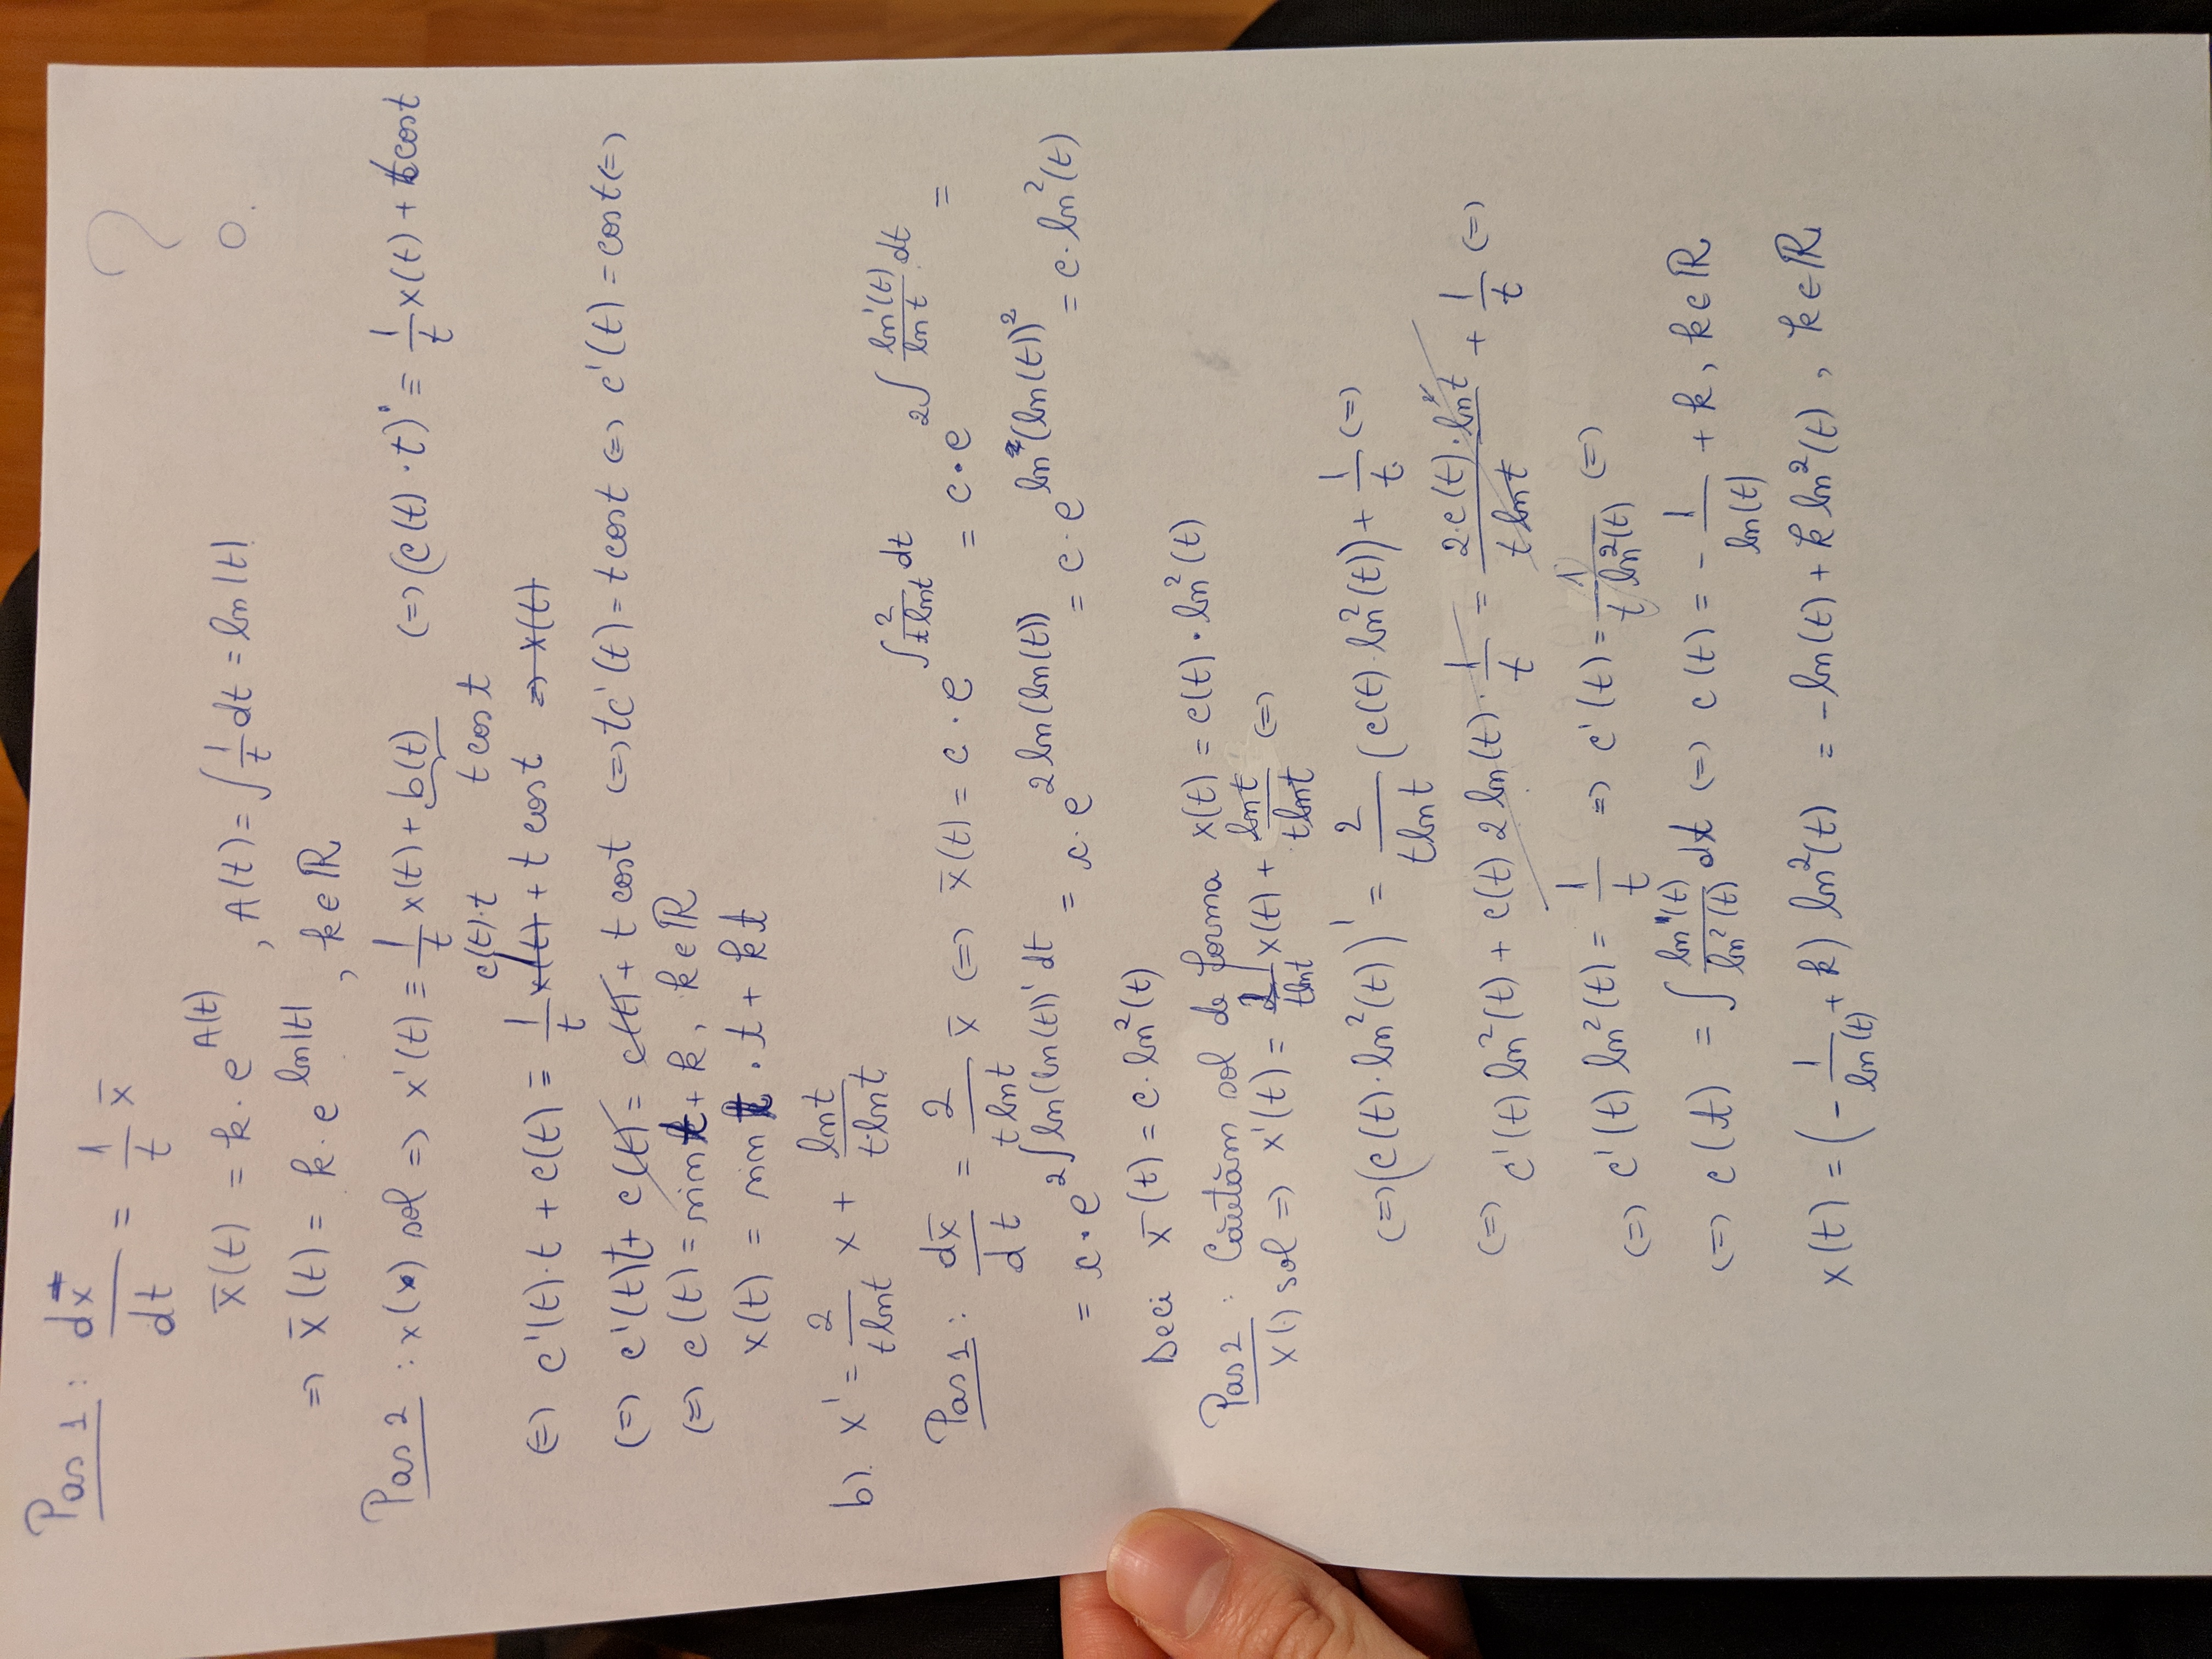 Pas 1 : dx̄/dt = 1/t x̄ ?
x̄(t) = k · e^A(t) , A(t) = ∫ 1/t dt = ln|t|
=> x̄(t) = k · e^ln|t| , k∈ℝ
Pas 2 : x(·) sol => x'(t) ≡ 1/t x(t) + b(t) (=) (c(t) · t)' ≡ 1/t x(t) + t cost
c(t)·t t cos t
(=) c'(t)·t + c(t) ≡ 1/t x(t) + t cos t => x(t)
(=) c'(t)t + c(t) = c(t) + t cost (=) tc'(t) = t cost (=) c'(t) = cost (=)
(=) c(t) = sin t + k, k∈ℝ
x(t) = sin t · t + kt
b). x' = 2/(t lnt) x + lnt/(t·lnt)
Pas 1 : dx̄/dt = 2/(t lnt) x̄ (=) x̄(t) = c · e^∫ 2/(t lnt) dt = c · e^2∫ ln'(t)/(ln t) dt =
= c · e^2∫ ln(ln(t))' dt = c · e^2 ln(ln(t)) = c · e^ln(ln(t))² = c · ln²(t)
Deci x̄(t) = c · ln²(t)
Pas 2 : Căutăm sol de forma x(t) = c(t) · ln²(t)
x(·) sol => x'(t) = 2/(t lnt) x(t) + lnt/(t lnt) (=)
(=) (c(t) · ln²(t))' = 2/(t ln t) (c(t) · ln²(t)) + 1/t (=)
(=) c'(t) ln²(t) + c(t) 2 ln(t) · 1/t = 2·c(t)·ln²t/(t ln t) + 1/t (=)
(=) c'(t) ln²(t) = 1/t => c'(t) = 1/(t ln²(t)) (=)
(=) c(t) = ∫ ln'(t)/ln²(t) dt (=) c(t) = - 1/ln(t) + k, k∈ℝ
x(t) = (- 1/ln(t) + k) ln²(t) = -ln(t) + k ln²(t) , k∈ℝ